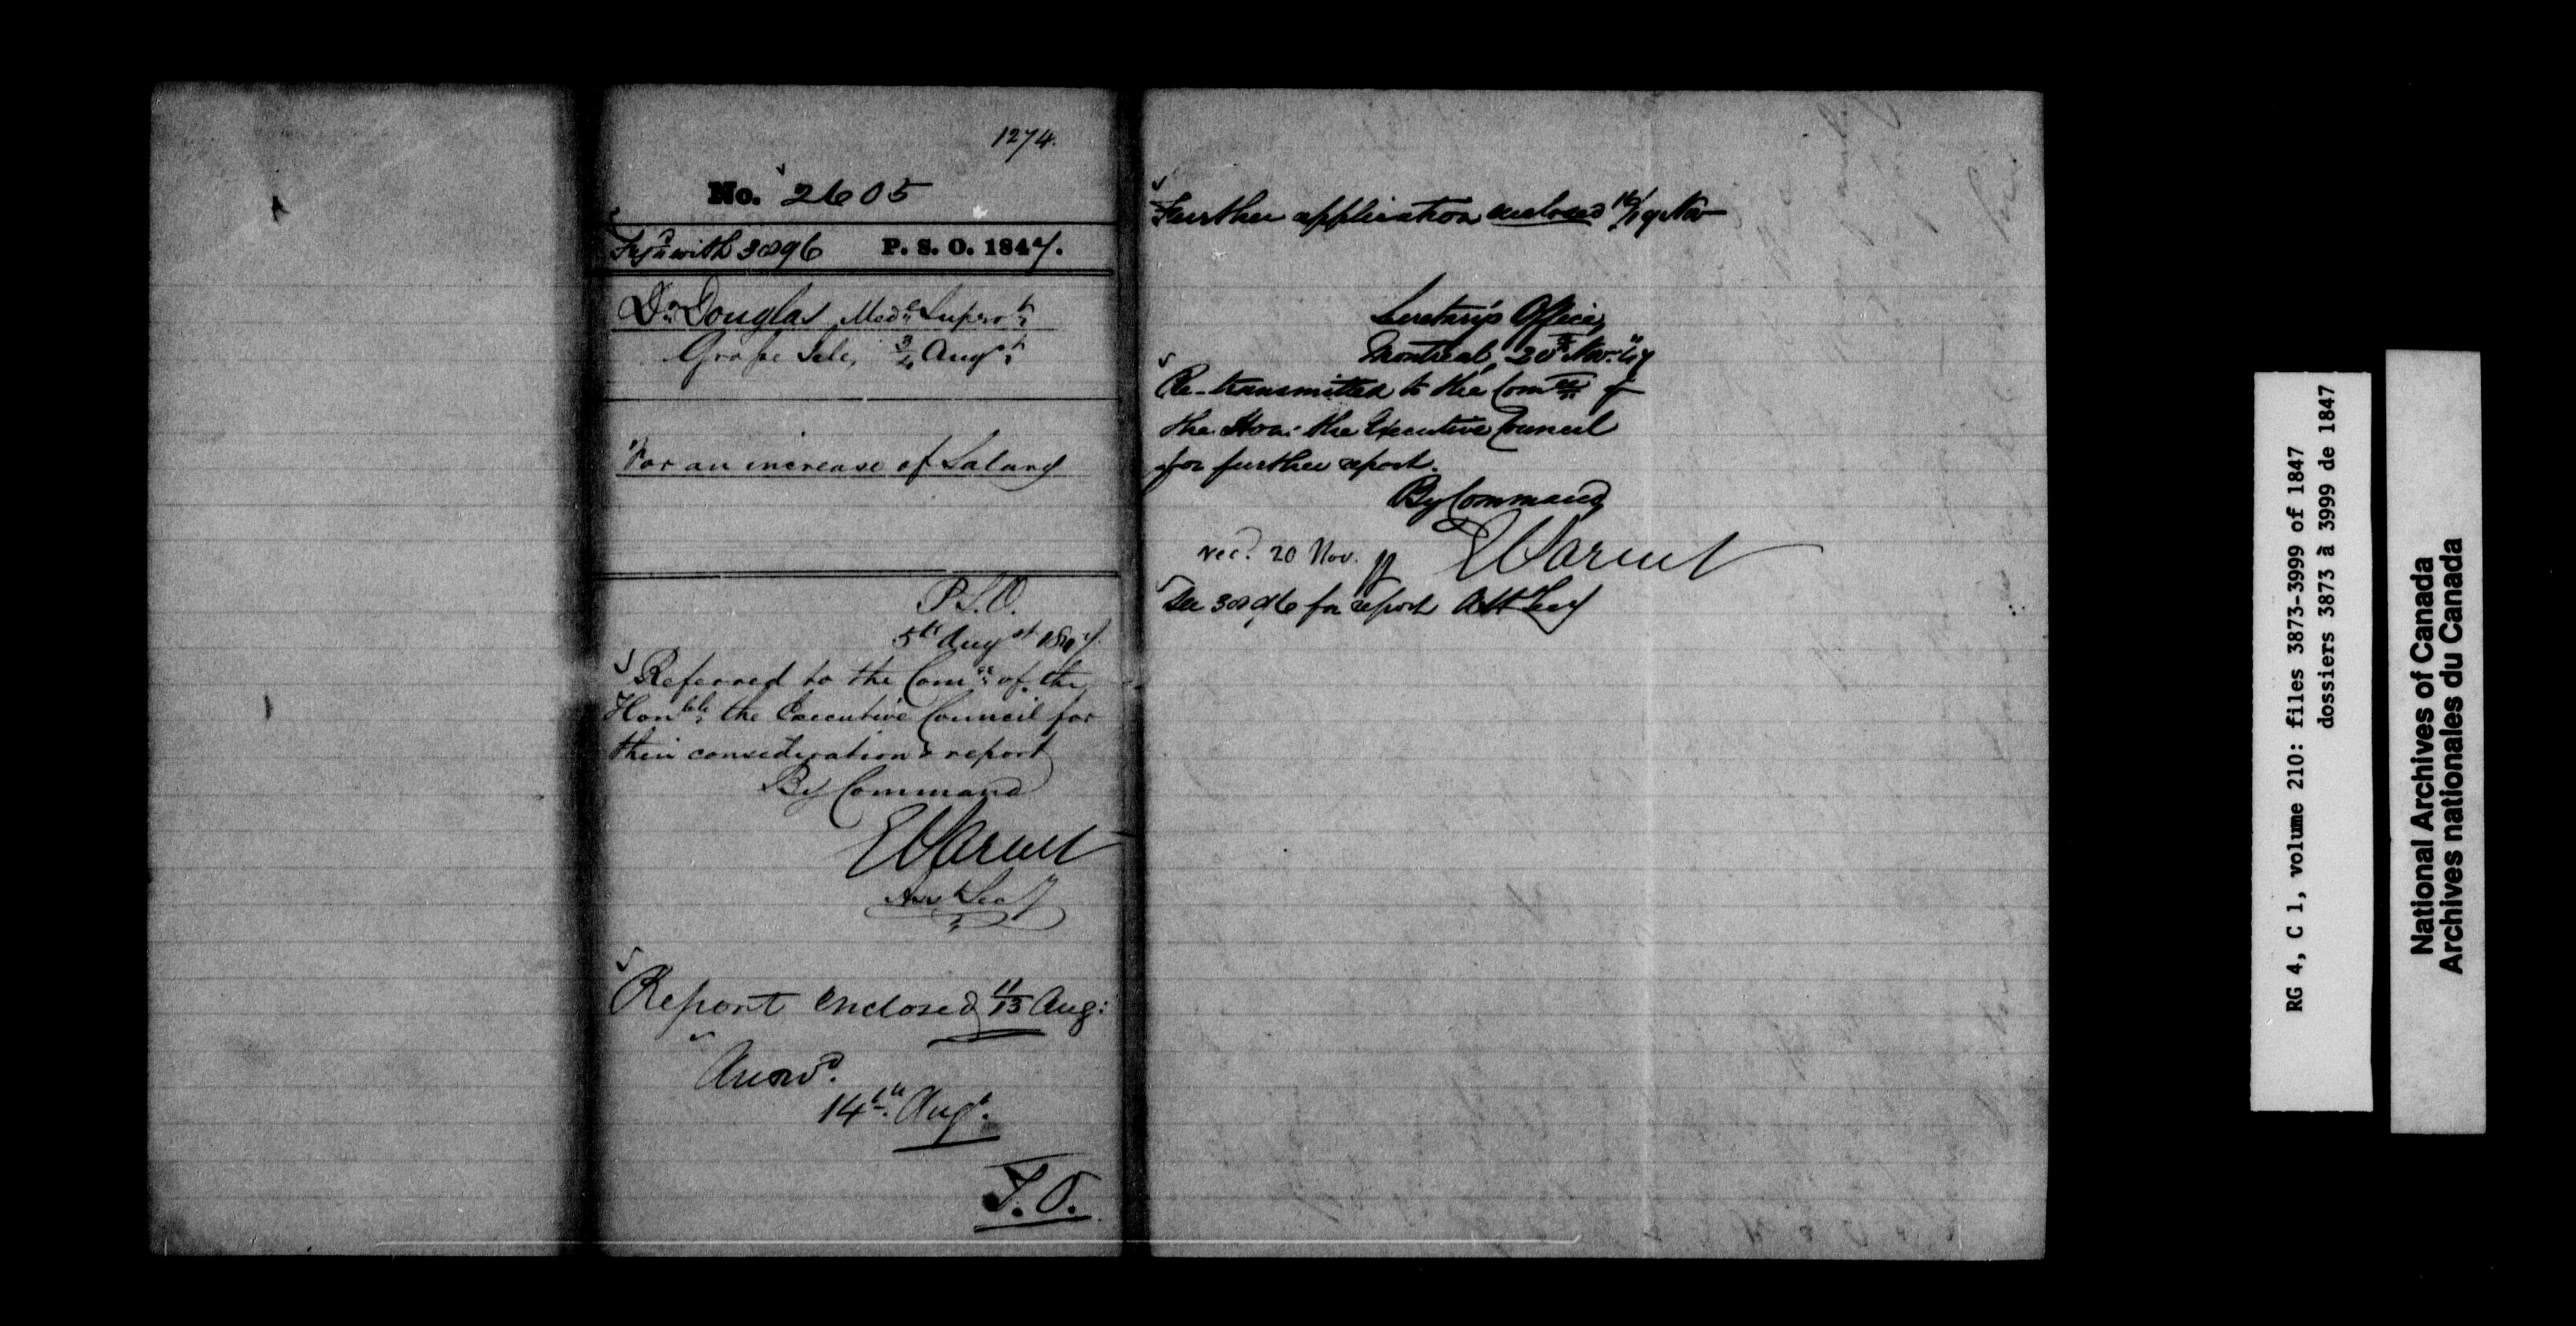 1274.
No. 2605
with 3896 P. S. O. 1847.
Dr. Douglas, Medl. Supert.
Grosse Isle, 3/4 Augt.
For an increase of Salary
P.S.O.
5th Augst 1847.
Referred to the Comee. of the
Honble. the Executive Council for
their consideration & report
By Command
E Parent
Asst Secy
Report enclosed 11/13 Aug:
Answd.
14th. Augt.
T.O.
Further application enclosed 16/19 Nov
Secretary's Office,
Montreal, 20th Nov: 47
Re-transmitted to the Comee of
the Hon: the Executive Council
for further report.
By Command
E Parent
recd. 20 Nov.
Asst Secy
See 3896 for report
RG 4, C 1, volume 210: files 3873-3999 of 1847
dossiers 3873 à 3999 de 1847
National Archives of Canada
Archives nationales du Canada